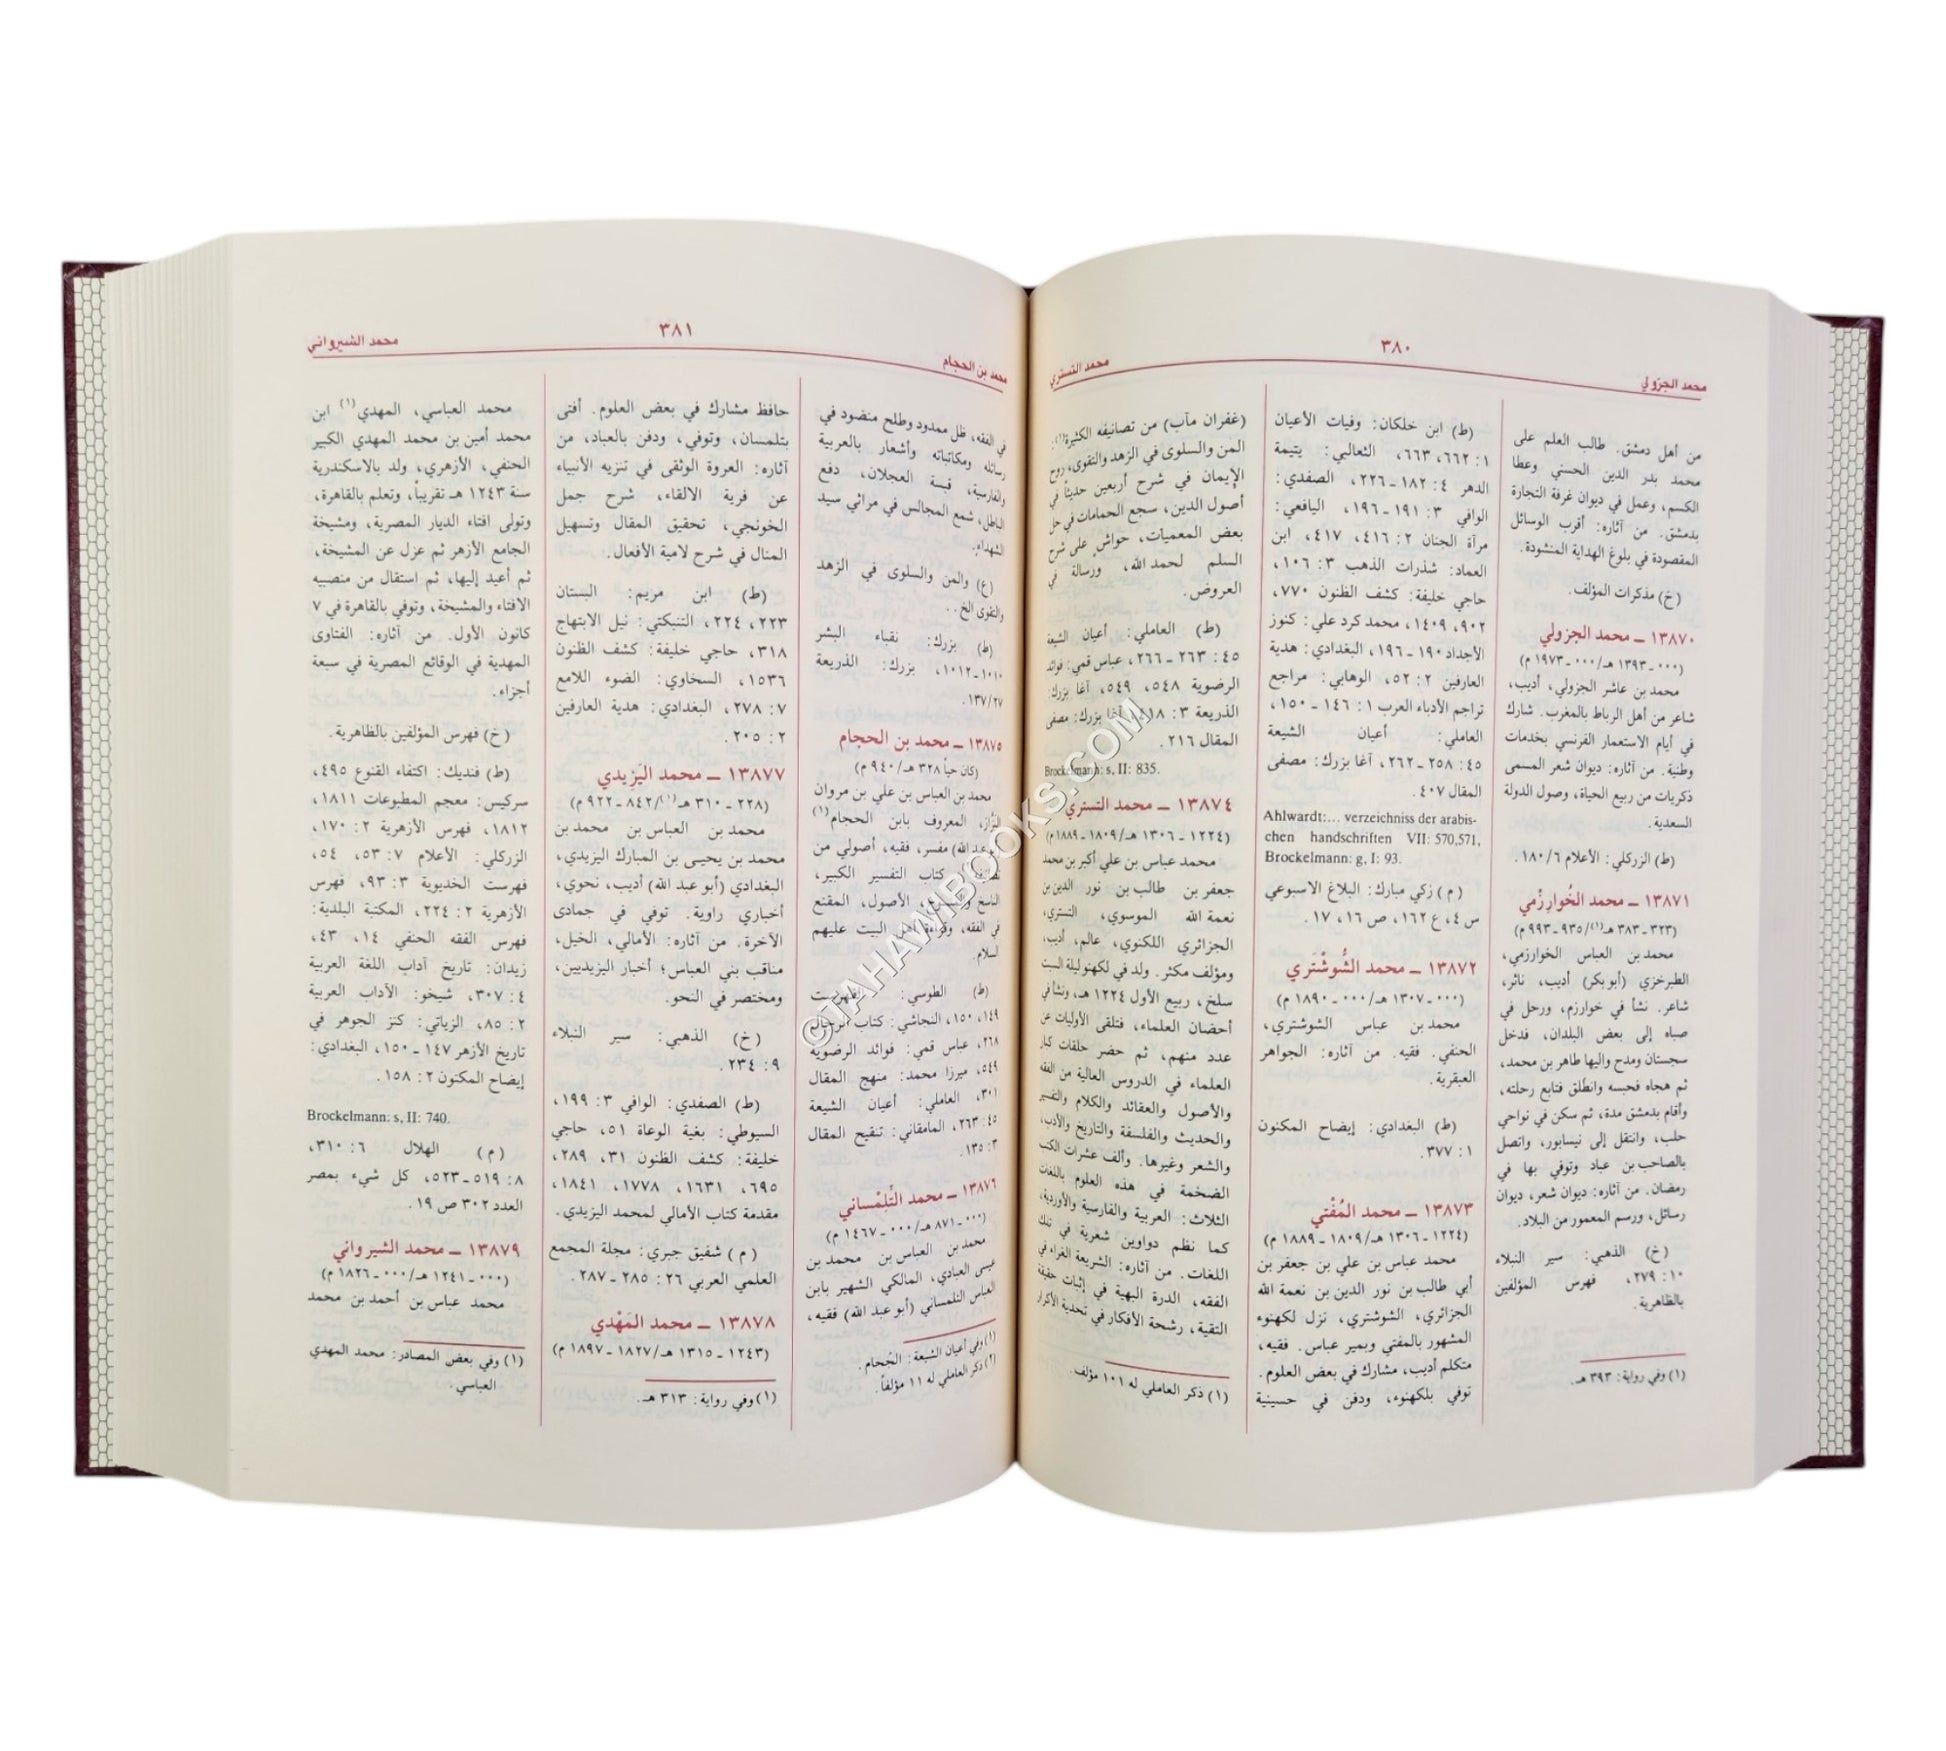 محمد الجزولي
٣٨٠
محمد التستري
من أهل دمشق. طالب العلم على
محمد بدر الدين الحسني وعطا
الكسم، وعمل في ديوان غرفة التجارة
بدمشق. من آثاره: أقرب الوسائل
المقصودة في بلوغ الهداية المنشودة.
(خ) مذكرات المؤلف.
١٣٨٧٠ ــ محمد الجزولي
(٠٠٠ ـ ١٣٩٣ هـ/٠٠٠ ـ ١٩٧٣ م)
محمد بن عاشر الجزولي، أديب،
شاعر من أهل الرباط بالمغرب. شارك
في أيام الاستعمار الفرنسي بخدمات
وطنية. من آثاره: ديوان شعر المسمى
ذكريات من ربيع الحياة، وصول الدولة
السعدية.
(ط) الزركلي: الأعلام ١٨٠/٦.
١٣٨٧١ ــ محمد الخُوارِزْمي
(٣٢٣ ـ ٣٨٣ هـ(١)/٩٣٥ ـ ٩٩٣ م)
محمد بن العباس الخوارزمي،
الطبرخزي (أبو بكر) أديب، ناثر،
شاعر. نشأ في خوارزم، ورحل في
صباه إلى بعض البلدان، فدخل
سجستان ومدح واليها طاهر بن محمد،
ثم هجاه فحبسه وانطلق فتابع رحلته،
وأقام بدمشق مدة، ثم سكن في نواحي
حلب، وانتقل إلى نيسابور، واتصل
بالصاحب بن عباد وتوفي بها في
رمضان. من آثاره: ديوان شعر، ديوان
رسائل، ورسم المعمور من البلاد.
(خ) الذهبي: سير النبلاء
١٠ : ٢٧٩، فهرس المؤلفين
بالظاهرية.
(١) وفي رواية: ٣٩٣ هـ.
(ط) ابن خلكان: وفيات الأعيان
١ : ٦٦٢، ٦٦٣، الثعالبي: يتيمة
الدهر ٤ : ١٨٢ ـ ٢٢٦، الصفدي:
الوافي ٣ : ١٩١ ـ ١٩٦، اليافعي:
مرآة الجنان ٢ : ٤١٦، ٤١٧، ابن
العماد: شذرات الذهب ٣ : ١٠٦،
حاجي خليفة: كشف الظنون ٧٧٠،
٩٠٢، ١٤٠٩، محمد كرد علي: كنوز
الأجداد ١٩٠ ـ ١٩٦، البغدادي: هدية
العارفين ٢ : ٥٢، الوهابي: مراجع
تراجم الأدباء العرب ١ : ١٤٦ ـ ١٥٠،
العاملي: أعيان الشيعة
٤٥ : ٢٥٨ ـ ٢٦٢، آغا بزرك: مصفى
المقال ٤٠٧.
Ahlwardt:... verzeichniss der arabis-
chen handschriften VII: 570,571,
Brockelmann: g, I: 93.
(م) زكي مبارك: البلاغ الاسبوعي
س ٤، ع ١٦٢، ص ١٦، ١٧.
١٣٨٧٢ ــ محمد الشُّوشْتَري
(٠٠٠ ـ ١٣٠٧ هـ/٠٠٠ ـ ١٨٩٠ م)
محمد بن عباس الشوشتري،
الحنفي. فقيه. من آثاره: الجواهر
العبقرية.
(ط) البغدادي: إيضاح المكنون
١ : ٣٧٧.
١٣٨٧٣ ــ محمد المُفْتي
(١٢٢٤ ـ ١٣٠٦ هـ/١٨٠٩ ـ ١٨٨٩ م)
محمد عباس بن علي بن جعفر بن
أبي طالب بن نور الدين بن نعمة الله
الجزائري، الشوشتري، نزل لكهنوء
المشهور بالمفتي وبمير عباس. فقيه،
متكلم أديب، مشارك في بعض العلوم.
توفي بلكهنوء، ودفن في حسينية
(غفران مآب) من تصانيفه الكثيرة(١):
المن والسلوى في الزهد والتقوى، روح
الإيمان في شرح أربعين حديثاً في
أصول الدين، سجع الحمامات في حل
بعض المعميات، حواش على شرح
السلم لحمد الله، ورسالة في
العروض.
(ط) العاملي: أعيان الشيعة
٤٥ : ٢٦٣ ـ ٢٦٦، عباس قمي: فوائد
الرضوية ٥٤٨، ٥٤٩، آغا بزرك:
الذريعة ٣ : ٤١٨، آغا بزرك: مصفى
المقال ٢١٦.
Brockelmann: s, II: 835.
١٣٨٧٤ ــ محمد التستري
(١٢٢٤ ـ ١٣٠٦ هـ/١٨٠٩ ـ ١٨٨٩ م)
محمد عباس بن علي أكبر بن محمد
جعفر بن طالب بن نور الدين بن
نعمة الله الموسوي، التستري،
الجزائري اللكنوي، عالم، أديب،
ومؤلف مكثر. ولد في لكهنو ليلة السبت
سلخ، ربيع الأول ١٢٢٤ هـ، ونشأ في
أحضان العلماء، فتلقى الأوليات عن
عدد منهم، ثم حضر حلقات كبار
العلماء في الدروس العالية من الفقه
والأصول والعقائد والكلام والتفسير
والحديث والفلسفة والتاريخ والأدب،
والشعر وغيرها. وألف عشرات الكتب
الضخمة في هذه العلوم باللغات
الثلاث: العربية والفارسية والأوردية،
كما نظم دواوين شعرية في تلك
اللغات. من آثاره: الشريعة الغراء في
الفقه، الدرة البهية في إثبات حقيقة
التقية، رشحة الأفكار في تحدية الأكرار
(١) ذكر العاملي له ١٠١ مؤلف.
محمد بن الحجام
٣٨١
محمد الشيرواني
في الفقه، ظل ممدود وطلح منضود في
رسائله ومكاتباته وأشعار بالعربية
والفارسية، قبسة العجلان، دفع
الباطل، شمع المجالس في مراثي سيد
الشهداء.
(ع) والمن والسلوى في الزهد
والتقوى الخ..
(ط) بزرك: نقباء البشر
١٠١٠ ـ ١٠١٢، بزرك: الذريعة
١٣٧/٢٧.
١٣٨٧٥ ــ محمد بن الحجام
(كان حياً ٣٢٨ هـ/٩٤٠ م)
محمد بن العباس بن علي بن مروان
البزّاز، المعروف بابن الحجام(١)
(أبو عبد الله) مفسر، فقيه، أصولي من
كتاب التفسير الكبير،
الأصول، المقنع
في الفقه، وقراءة أهل البيت عليهم
السلام.
(ط) الطوسي: الفهرست
١٤٩، ١٥٠، النجاشي: كتاب الرجال
٢٦٨، عباس قمي: فوائد الرضوية
٥٤٩، ميرزا محمد: منهج المقال
٣٠١، العاملي: أعيان الشيعة
٤٥ : ٢٦٣، المامقاني: تنقيح المقال
٣ : ١٣٥.
١٣٨٧٦ ــ محمد التِّلِمْساني
(٠٠٠ ـ ٨٧١ هـ/٠٠٠ ـ ١٤٦٧ م)
محمد بن العباس بن محمد بن
عيسى العبادي، المالكي الشهير بابن
العباس التلمساني (أبو عبد الله) فقيه،
(١) وفي أعيان الشيعة: الجُحام.
(٢) ذكر العاملي له ١١ مؤلفاً.
حافظ مشارك في بعض العلوم. أفتى
بتلمسان، وتوفي، ودفن بالعباد، من
آثاره: العروة الوثقى في تنزيه الأنبياء
عن فرية الالقاء، شرح جمل
الخونجي، تحقيق المقال وتسهيل
المنال في شرح لامية الأفعال.
(ط) ابن مريم: البستان
٢٢٣، ٢٢٤، التنبكتي: نيل الابتهاج
٣١٨، حاجي خليفة: كشف الظنون
١٥٣٦، السخاوي: الضوء اللامع
٧ : ٢٧٨، البغدادي: هدية العارفين
٢ : ٢٠٥.
١٣٨٧٧ ــ محمد اليَزِيدي
(٢٢٨ ـ ٣١٠ هـ(١)/٨٤٢ ـ ٩٢٢ م)
محمد بن العباس بن محمد بن
محمد بن يحيى بن المبارك اليزيدي،
البغدادي (أبو عبد الله) أديب، نحوي،
أخباري راوية. توفي في جمادى
الآخرة. من آثاره: الأمالي، الخيل،
مناقب بني العباس؛ أخبار اليزيديين،
ومختصر في النحو.
(خ) الذهبي: سير النبلاء
٩ : ٢٣٤.
(ط) الصفدي: الوافي ٣ : ١٩٩،
السيوطي: بغية الوعاة ٥١، حاجي
خليفة: كشف الظنون ٣١، ٢٨٩،
٦٩٥، ١٦٣١، ١٧٧٨، ١٨٤١،
مقدمة كتاب الأمالي لمحمد اليزيدي.
(م) شفيق جبري: مجلة المجمع
العلمي العربي ٢٦ : ٢٨٥ ـ ٢٨٧.
١٣٨٧٨ ــ محمد المَهْدي
(١٢٤٣ ـ ١٣١٥ هـ/١٨٢٧ ـ ١٨٩٧ م)
(١) وفي رواية: ٣١٣ هـ.
محمد العباسي، المهدي(١) ابن
محمد أمين بن محمد المهدي الكبير
الحنفي، الأزهري، ولد بالاسكندرية
سنة ١٢٤٣ هـ تقريباً، وتعلم بالقاهرة،
وتولى افتاء الديار المصرية، ومشيخة
الجامع الأزهر ثم عزل عن المشيخة،
ثم أعيد إليها، ثم استقال من منصبيه
الافتاء والمشيخة، وتوفي بالقاهرة في ٧
كانون الأول. من آثاره: الفتاوى
المهدية في الوقائع المصرية في سبعة
أجزاء.
(خ) فهرس المؤلفين بالظاهرية.
(ط) فنديك: اكتفاء القنوع ٤٩٥،
سركيس: معجم المطبوعات ١٨١١،
١٨١٢، فهرس الأزهرية ٢ : ١٧٠،
الزركلي: الأعلام ٧ : ٥٣، ٥٤،
فهرست الخديوية ٣ : ٩٣، فهرس
الأزهرية ٢ : ٢٢٤، المكتبة البلدية:
فهرس الفقه الحنفي ١٤، ٤٣،
زيدان: تاريخ آداب اللغة العربية
٤ : ٣٠٧، شيخو: الآداب العربية
٢ : ٨٥، الزياتي: كنز الجوهر في
تاريخ الأزهر ١٤٧ ـ ١٥٠، البغدادي:
إيضاح المكنون ٢ : ١٥٨.
Brockelmann: s, II: 740.
(م) الهلال ٦ : ٣١٠،
٨ : ٥١٩ ـ ٥٢٣، كل شيء بمصر
العدد ٣٠٢ ص ١٩.
١٣٨٧٩ ــ محمد الشيرواني
(٠٠٠ ـ ١٢٤١ هـ/٠٠٠ ـ ١٨٢٦ م)
محمد عباس بن أحمد بن محمد
(١) وفي بعض المصادر: محمد المهدي
العباسي.
©TAHAWIBOOKS.COM